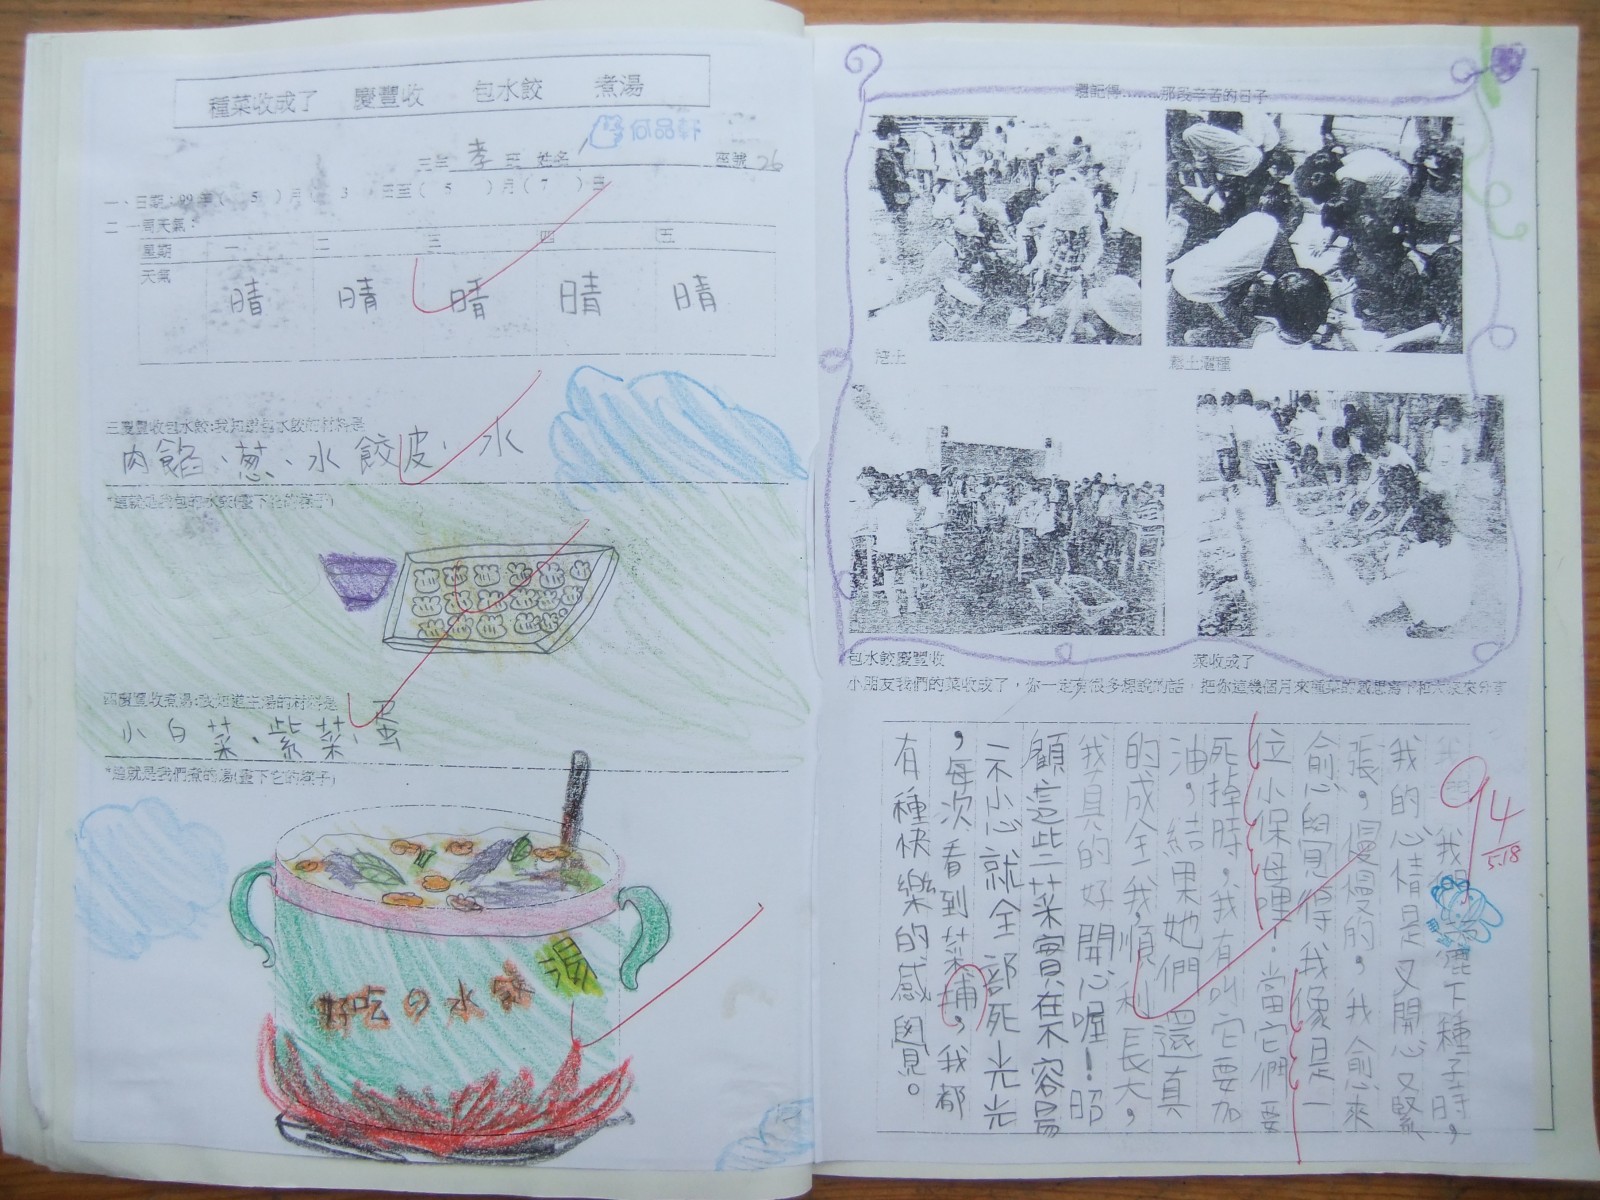 種菜收成了 慶豐收 包水餃 煮湯
三年 孝 班 姓名 何品軒 座號 26
一、日期:99年( 5 )月( 3 )日至( 5 )月( 7 )日
二 一周天氣:
星期 一 二 三 四 五
天氣 晴 晴 晴 晴 晴
三慶豐收包水餃:我知道包水餃的材料是
肉餡、蔥、水餃皮、水
*這就是我包的水餃(畫下它的樣子)
四慶豐收煮湯:我知道主湯的材料是
小白菜、紫菜、蛋
*這就是我們煮的湯(畫下它的樣子)
好吃の水餃 湯
還記得........那段辛苦的日子
挖土
鬆土灑種
包水餃慶豐收
菜收成了
小朋友我們的菜收成了,你一定有很多想說的話,把你這幾個月來種菜的感想寫下和大家來分享
94
5.18
灑下種子時,
我的心情是又開心又緊
張,慢慢的,我愈來
愈覺得我像是一
位小保母哩!當它們要
死掉時,我有叫它要加
油,結果她們還真
的成全我,順利長大,
我真的好開心喔!昭
顧這些菜實在不容易
一不小心就全部死光光
,每次看到菜埔,我都
有種快樂的感覺。